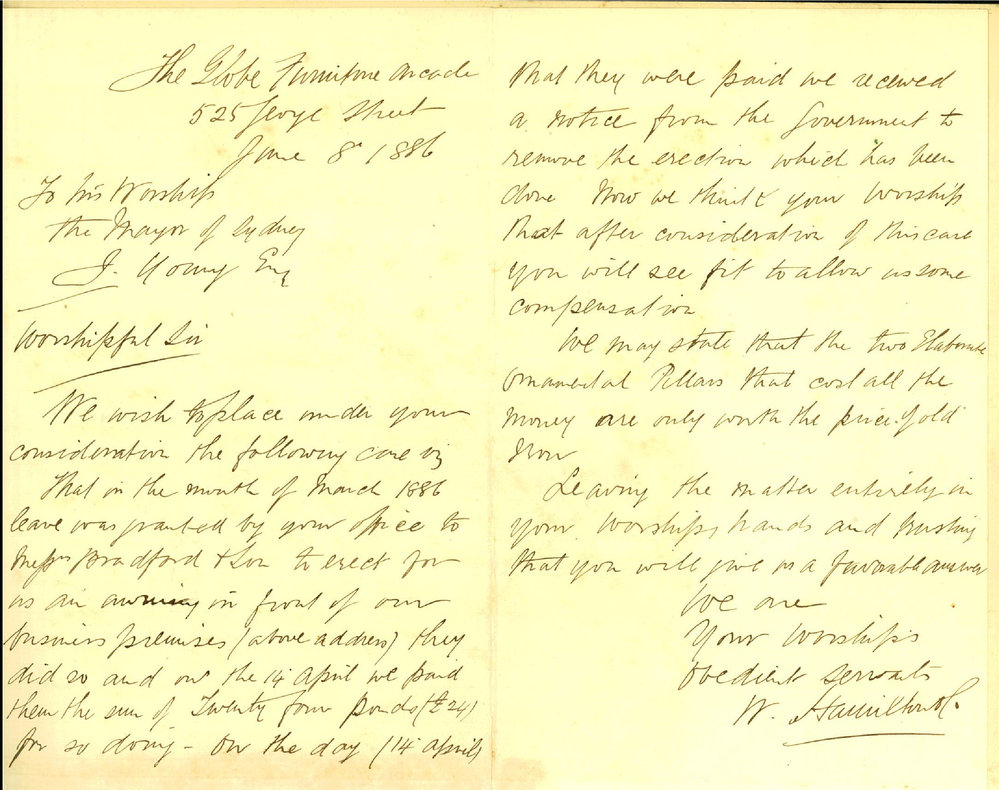 The Globe Furniture Arcade
525 George Street
June 8th 1886
To his Worship
the Mayor of Sydney
J. Young Esq
Worshipful Sir
We wish to place under your
consideration the following case viz
That in the month of March 1886
leave was granted by your office to
Messrs Bradford & Son to erect for
us an awning in front of our
business premises (above address) they
did so and on the 14 April we paid
them the sum of Twenty four pounds (£24)
for so doing - On the day (14 April)
that they were paid we received
a notice from the Government to
remove the erection which has been
done Now we think your Worship
that after consideration of this case
you will see fit to allow us some
compensation
We may state that the two Elaborate
Ornamental Pillars that cost all the
money are only worth the price of old
Iron
Leaving the matter entirely in
your Worships hands and trusting
that you will give us a favorable answer
We are
Your Worships
Obedient Servants
W. Hamilton & Co.